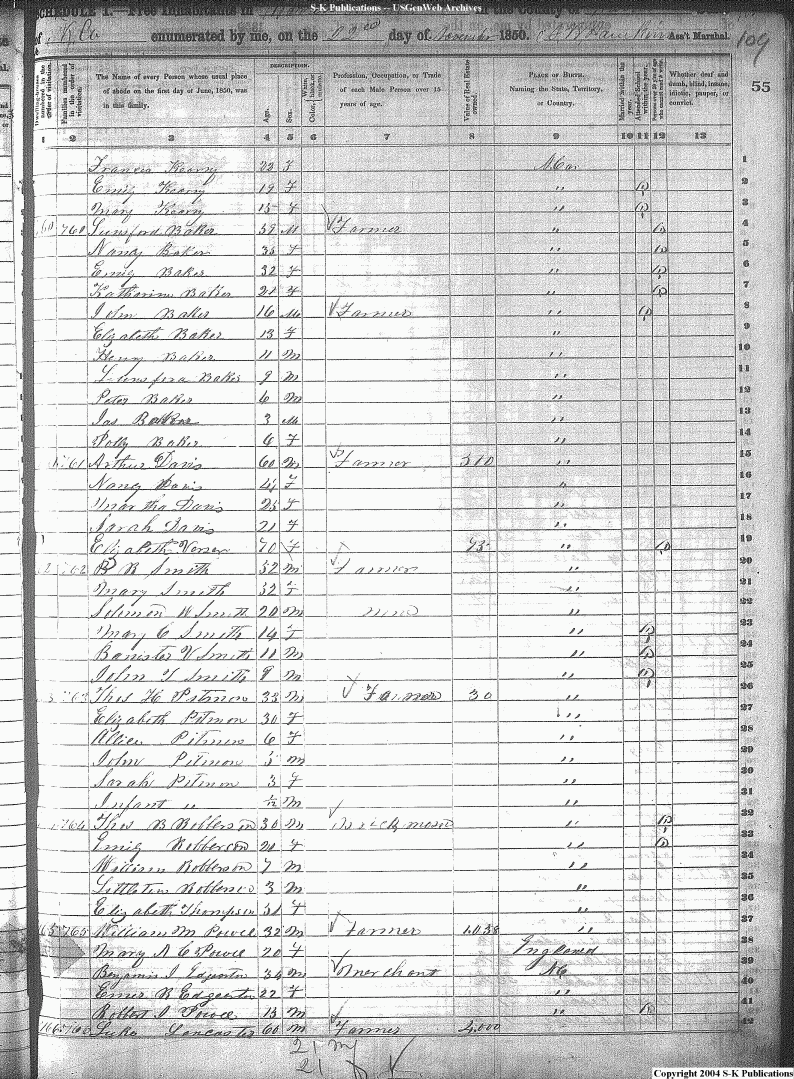 S-K Publications -- USGenWeb Archives
SCHEDULE I.—Free Inhabitants in the County of
enumerated by me, on the 22nd day of November 1850. Ass't Marshal. 109
55
DESCRIPTION.
Dwelling-houses numbered in the order of visitation. Families numbered in the order of visitation. The Name of every Person whose usual place of abode on the first day of June, 1850, was in this family. Age. Sex. Color, White, black, or mulatto. Profession, Occupation, or Trade of each Male Person over 15 years of age. Value of Real Estate owned. PLACE OF BIRTH. Naming the State, Territory, or Country. Married within the year. Attended School within the year. Persons over 20 years of age who cannot read & write. Whether deaf and dumb, blind, insane, idiotic, pauper, or convict.
1 2 3 4 5 6 7 8 9 10 11 12 13
Francis Kearny 22 F 1
Emily Kearny 19 F " 2
Mary Kearny 15 F " 3
760 Lunsford Baker 39 M Farmer " 4
Nancy Baker 35 F " 5
Emily Baker 32 F " 6
Katharine Baker 21 F " 7
John Baker 16 M Farmer " 8
Elizabeth Baker 13 F " 9
Henry Baker 11 M " 10
Baker 9 M " 11
Peter Baker 6 M " 12
Jas Baker 3 M " 13
Polly Baker 6 F " 14
761 Arthur Davis 60 M Farmer 310 " 15
Nancy Davis F " 16
Martha Davis 25 F " 17
Sarah Davis 21 F " 18
Elizabeth 70 F " 19
762 B R Smith 52 M Farmer " 20
Mary Smith 32 F " 21
Solomon W Smith 20 M none " 22
Mary C Smith 14 F " 23
Banister V Smith 11 M " 24
John T Smith 9 M " 25
763 Thos H Pitmon 33 M Farmer 30 " 26
Elizabeth Pitmon 30 F " 27
Pitmon 6 F " 28
John Pitmon 5 M " 29
Sarah Pitmon 3 F " 30
Infant " M "
764 Thos B Robberson 30 M Brick mason " 32
Emily Robberson 21 F " 33
William Robberson 7 M " 34
Littleton Robberson 3 M " 35
Elizabeth Thompson 51 F " 36
765 765 William M Powel 32 M Farmer 1038 " 37
Mary A C Powel 20 F England 38
Benjamin J Edgerton 34 M Merchant NC 39
R Edgerton 22 F " 40
Robert J Powel 13 M " 41
766 766 Luke Lancaster 60 M Farmer 2,000 " 42
21 M
21 F
Copyright 2004 S-K Publications